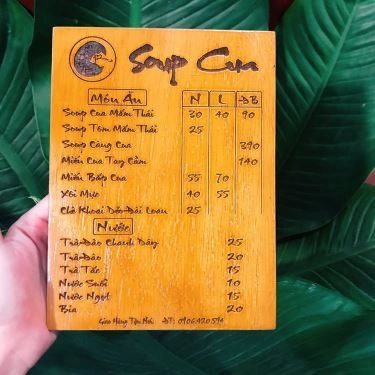 Soup Cua
Món Ăn N L ĐB
Soup Cua Mắm Thái 30 40 90
Soup Tôm Mắm Thái 25
Soup Càng Cua 390
Miến Cua Tay Cầm 140
Miến Bắp Cua 55 70
Xôi Mực 40 55
Chè Khoai Dẻo Đài Loan 25
Nước
Trà Đào Chanh Dây 25
Trà Đào 20
Trà Tắc 15
Nước Suối 10
Nước Ngọt 15
Bia 20
Giao Hàng Tận Nơi ĐT: 0906420594